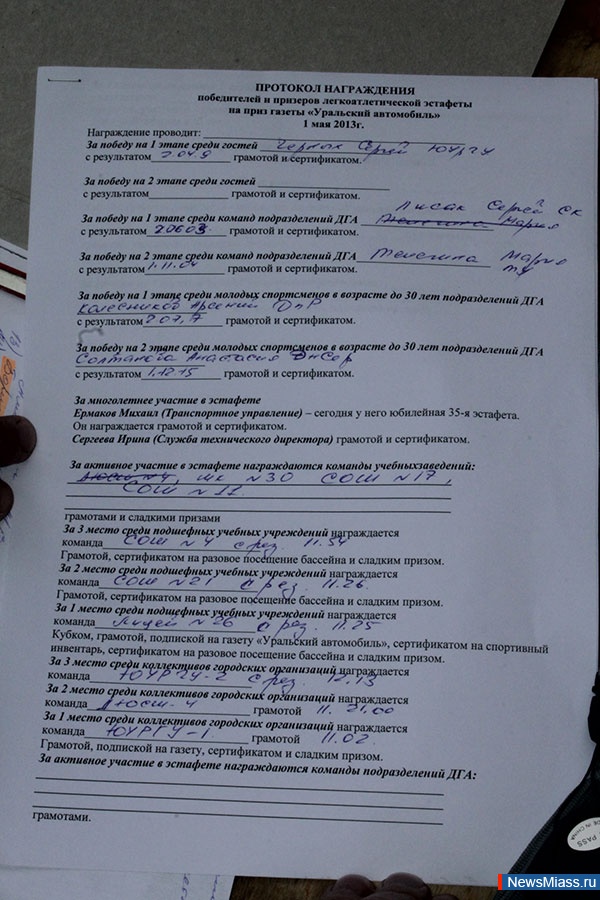 ПРОТОКОЛ НАГРАЖДЕНИЯ
победителей и призеров легкоатлетической эстафеты
на приз газеты «Уральский автомобиль»
1 мая 2013г.
Награждение проводит:
За победу на 1 этапе среди гостей Черных Сергей ЮУРГУ
с результатом 2.04.9 грамотой и сертификатом.
За победу на 2 этапе среди гостей
с результатом грамотой и сертификатом.
Лисак Сергей СК
За победу на 1 этапе среди команд подразделений ДГА Мария
с результатом 2.060 грамотой и сертификатом.
За победу на 2 этапе среди команд подразделений ДГА Мария
с результатом 1.11.04 грамотой и сертификатом. ТУ
За победу на 1 этапе среди молодых спортсменов в возрасте до 30 лет подразделений ДГА
Колесников Арсений
с результатом 2.07,7 грамотой и сертификатом.
За победу на 2 этапе среди молодых спортсменов в возрасте до 30 лет подразделений ДГА
Анастасия
с результатом 1.12.15 грамотой и сертификатом.
За многолетнее участие в эстафете
Ермаков Михаил (Транспортное управление) – сегодня у него юбилейная 35-я эстафета.
Он награждается грамотой и сертификатом.
Сергеева Ирина (Служба технического директора) грамотой и сертификатом.
За активное участие в эстафете награждаются команды учебныхзаведений:
№4, шк №30 СОШ №17,
СОШ №11
грамотами и сладкими призами
За 3 место среди подшефных учебных учреждений награждается
команда СОШ №4 с рез. 11.54
Грамотой, сертификатом на разовое посещение бассейна и сладким призом.
За 2 место среди подшефных учебных учреждений награждается
команда СОШ №21 с рез. 11.26.
Грамотой, сертификатом на разовое посещение бассейна и сладким призом.
За 1 место среди подшефных учебных учреждений награждается
команда Лицей №26 с рез. 11.25
Кубком, грамотой, подпиской на газету «Уральский автомобиль», сертификатом на спортивный
инвентарь, сертификатом на разовое посещение бассейна и сладким призом.
За 3 место среди коллективов городских организаций награждается
команда ЮУРГУ-2 с рез. 12.13
За 2 место среди коллективов городских организаций награждается
команда ДЮСШ-4 грамотой 11.21,00
За 1 место среди коллективов городских организаций награждается
команда ЮУРГУ-1. грамотой 11.02.
Грамотой, подпиской на газету, сертификатом и сладким призом.
За активное участие в эстафете награждаются команды подразделений ДГА:
грамотами.
PASS
NewsMiass.ru